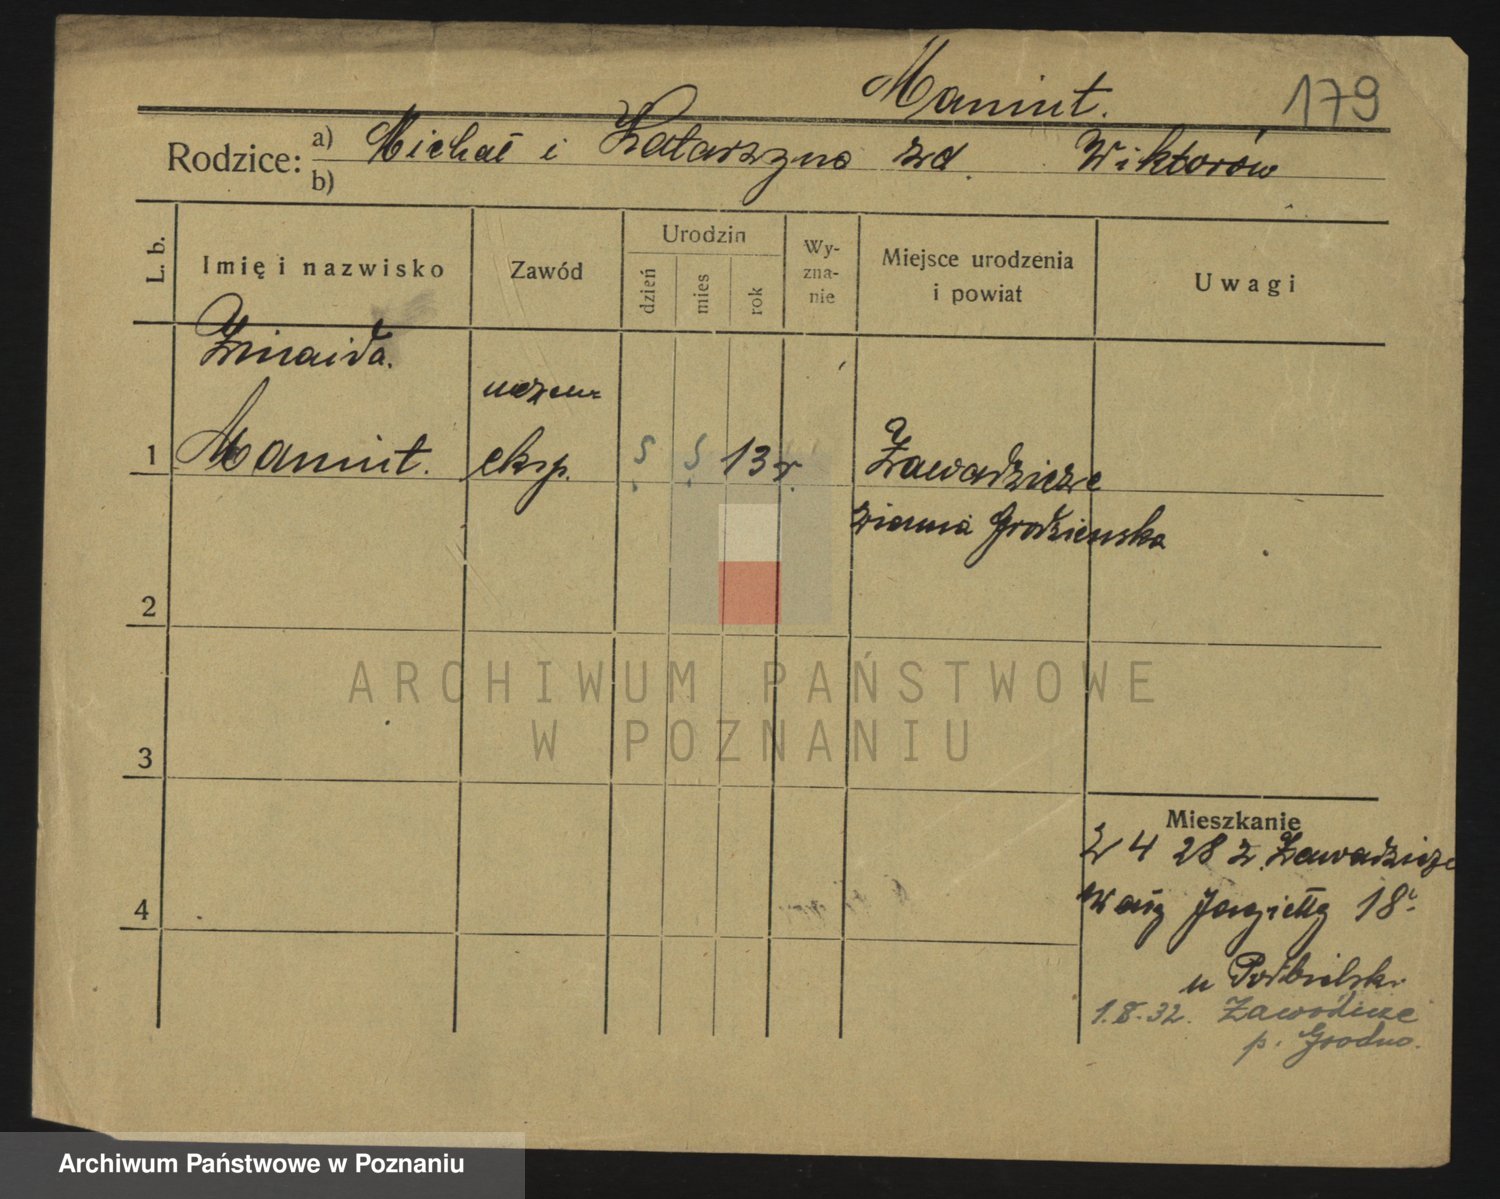 Mamut.
179
Rodzice: a) Michał i Katarzyna zd. Wiktorów
b)
L. b.
Imię i nazwisko
Zawód
Urodzin
dzień
mies
rok
Wy-
zna-
nie
Miejsce urodzenia
i powiat
Uwagi
Zinaida.
1 Mamut.
eksp.
5 5 13 r.
Zawadzicze
ziemia Grodzieńska
2
3
4
ARCHIWUM PAŃSTWOWE
W POZNANIU
Mieszkanie
Z 4 28 z Zawadzicze
Jagiełły 18
u Podbielski
1.8.32. Zawodicze
p. Grodno.
Archiwum Państwowe w Poznaniu